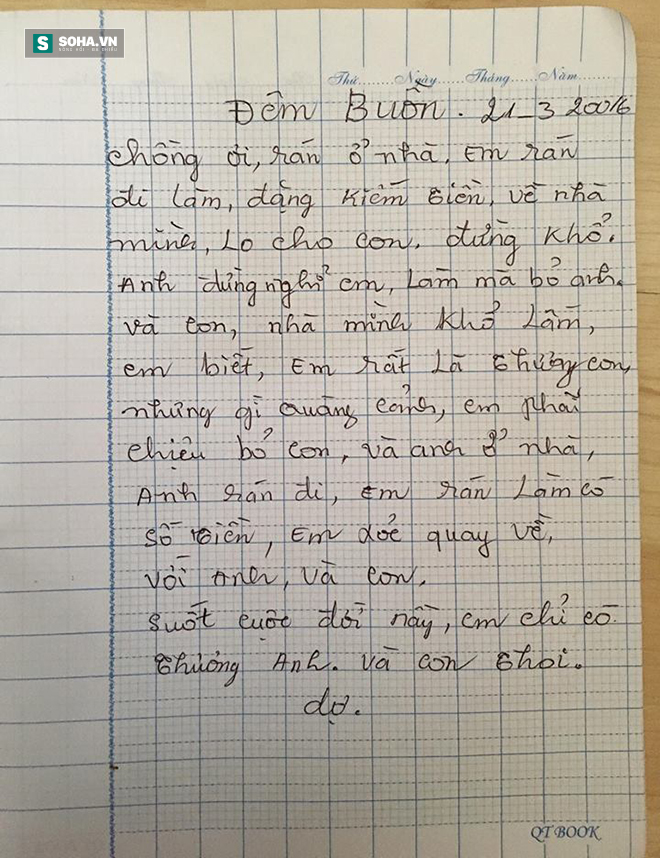 SOHA.VN
Thứ........Ngày........Tháng........Năm........
Đêm Buồn. 21_3 20016
chồng ơi, rán ở nhà, Em rán
đi làm, dặng kiếm tiền, về nhà
mình, Lo cho con. đừng khổ.
Anh dừng nghỉ em, Làm mà bỏ anh.
và con, nhà mình khổ Lắm,
em biết, Em rất Là thương con,
nhưng gì quảng cảnh, em phải
chiệu bỏ con, và anh ở nhà,
Anh rán đi, Em rán Làm có
số tiền, Em dốc quay về,
với Anh, và con.
suốt cuộc đời này, em chỉ có
thương Anh. và con thoi.
dợ.
QT BOOK